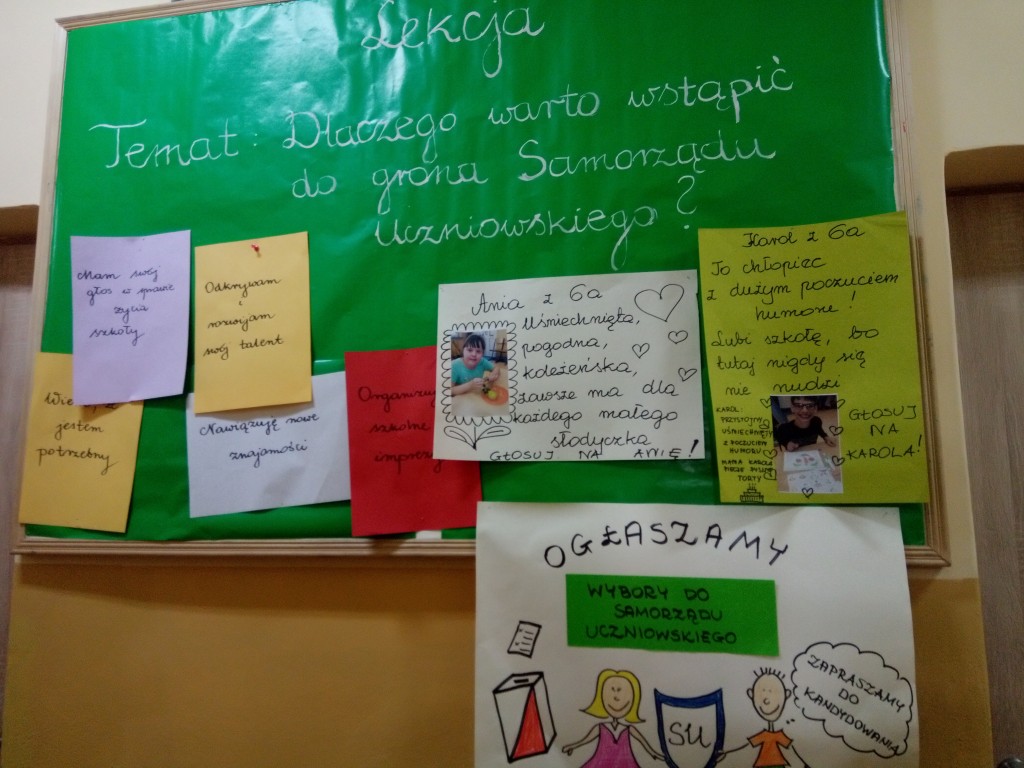 Lekcja
Temat: Dlaczego warto wstąpić
do grona Samorządu
Uczniowskiego?
Mam swój
głos w sprawie
życia
szkoły
Odkrywam
i
rozwijam
swój talent
jestem
potrzebny
Nawiązuję nowe
znajomości
Organizuję
szkolne
imprezy
Ania z 6a
Uśmiechnięta,
pogodna,
koleżeńska,
zawsze ma dla
każdego małego
słodyczka
GŁOSUJ NA ANIĘ!
Karol z 6a
To chłopiec
z dużym poczuciem
humoru!
Lubi szkołę, bo
tutaj nigdy się
nie nudzi
KAROL:
PRZYSTOJNY
UŚMIECHNIĘTY
Z POCZUCIEM
HUMORU
MAMA KAROLA
PIECZE PYSZNE
TORTY
GŁOSUJ
NA
KAROLA!
OGŁASZAMY
WYBORY DO
SAMORZĄDU
UCZNIOWSKIEGO
SU
ZAPRASZAMY
DO
KANDYDOWANIA